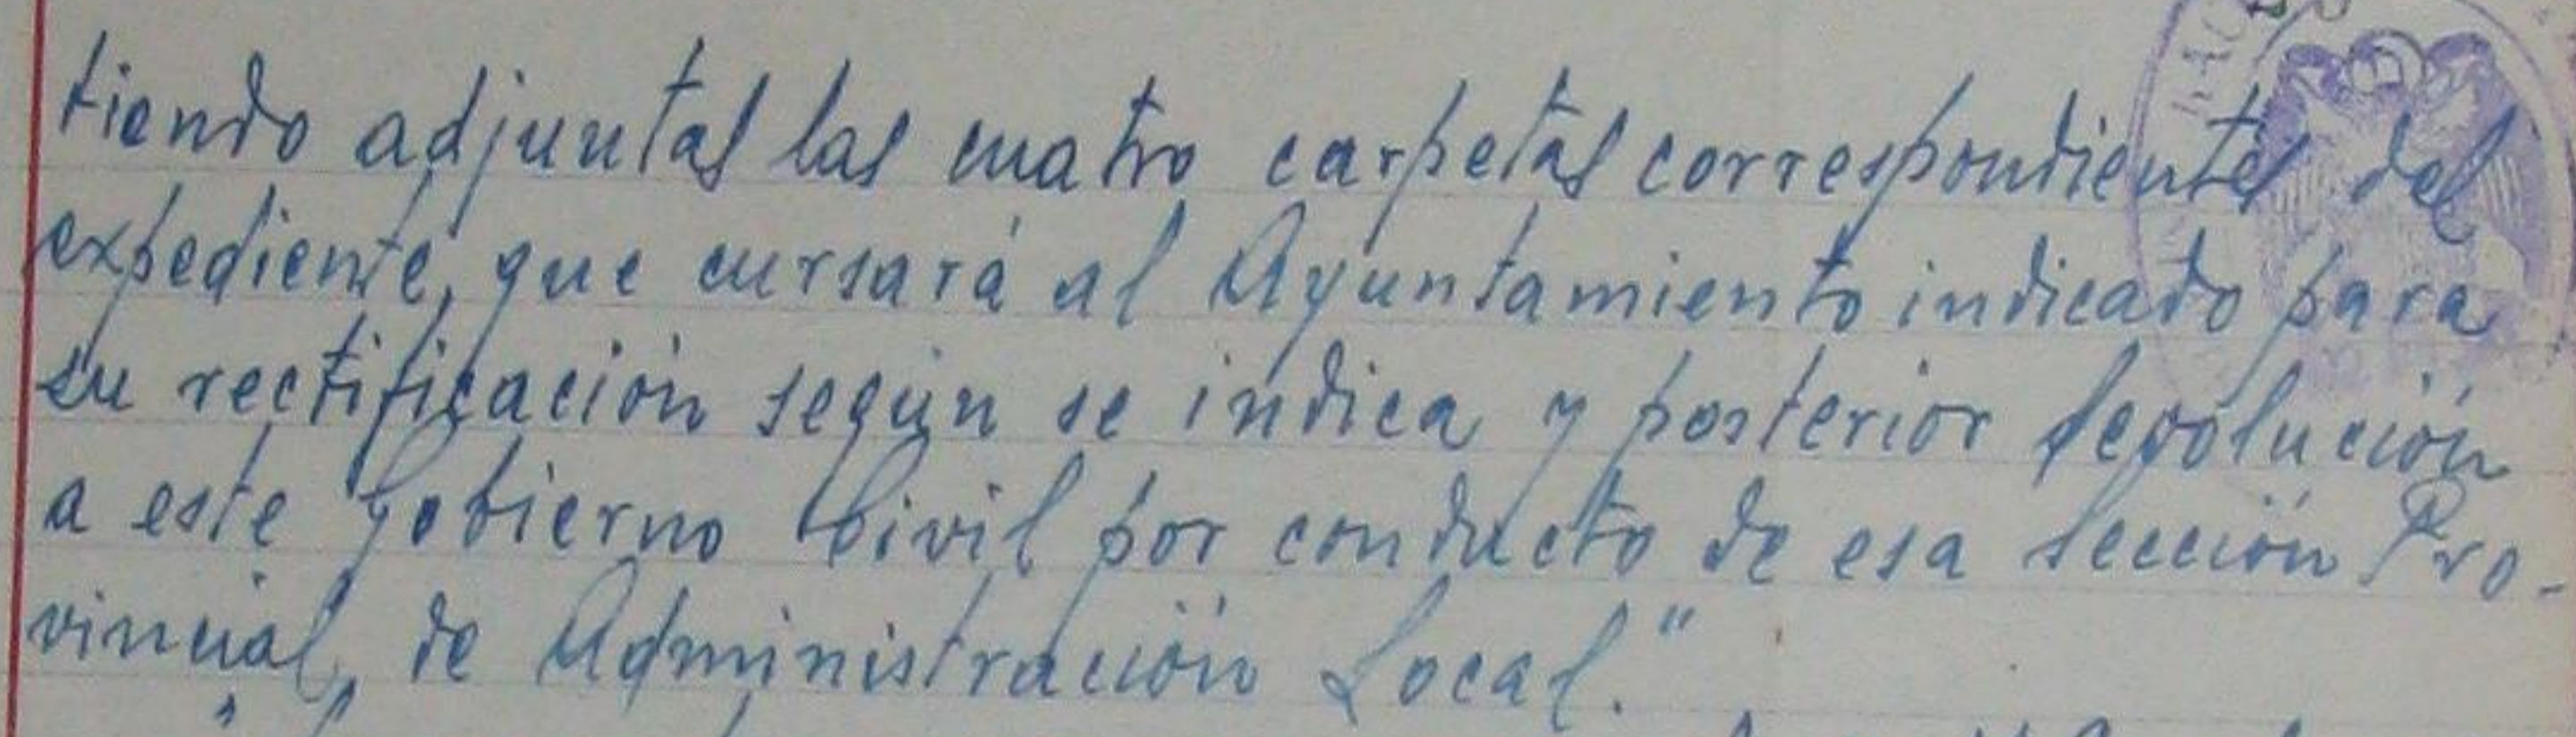 tiendo adjuntas las cuatro carpetas correspondientes del
expediente, que cursará al Ayuntamiento indicado para
su rectificación según se indica y posterior devolución
a este Gobierno Civil por conducto de esa Sección Pro-
vincial, de Administración Local."